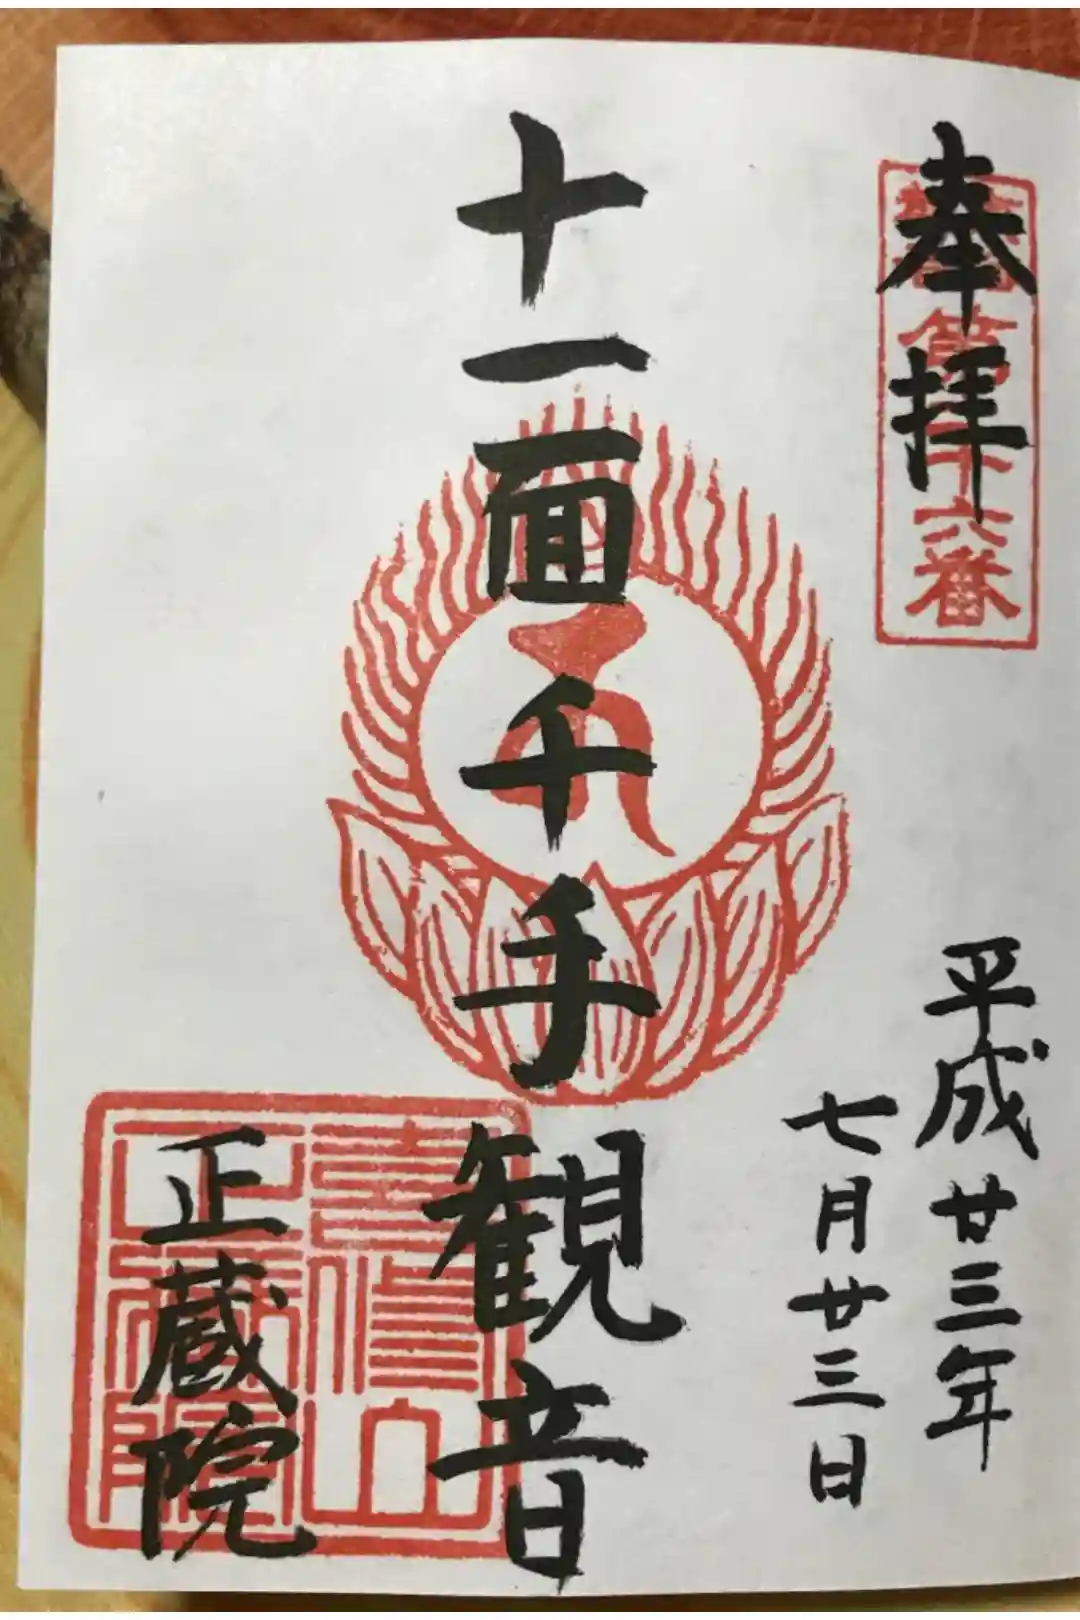 奉拝
十六番
平成廿三年
七月廿三日
十一面千手観音
正蔵院